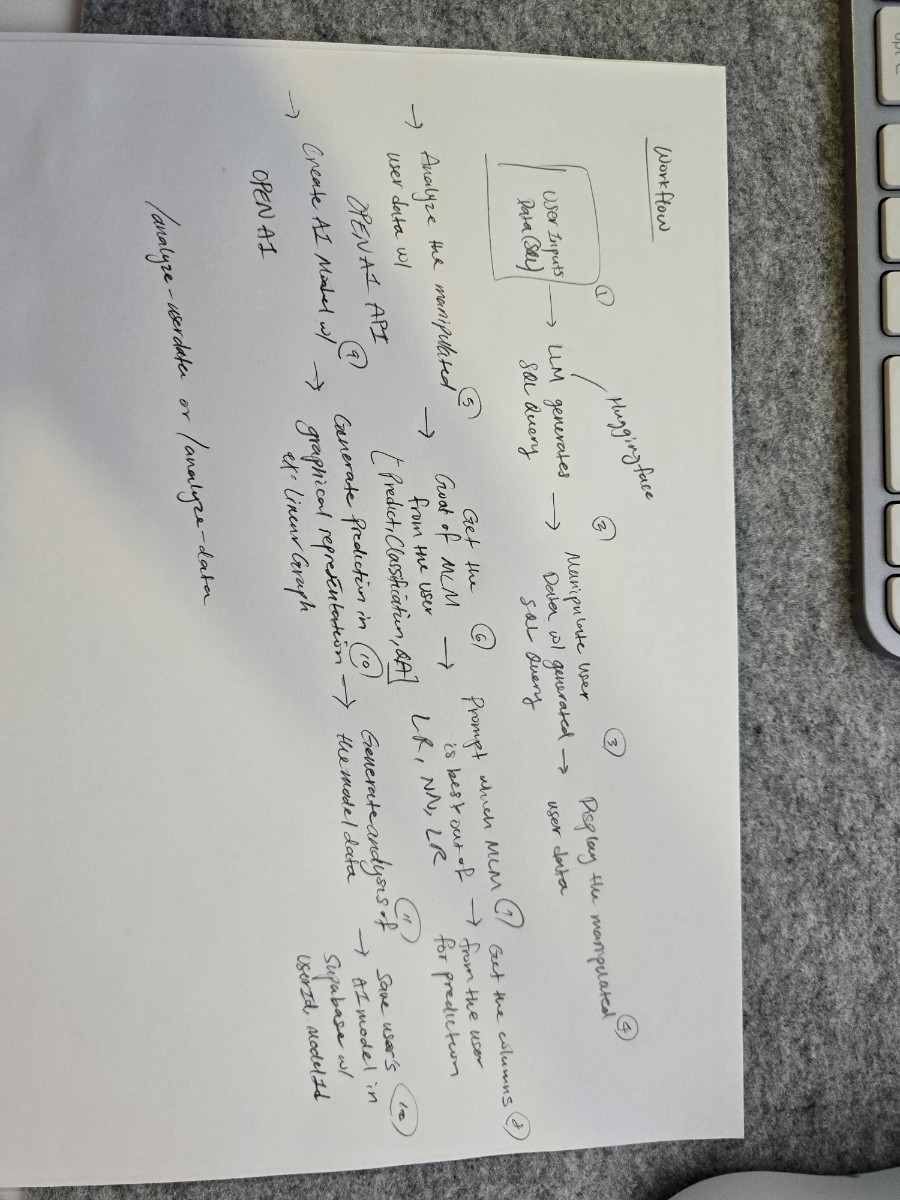 Workflow
Huggingface
①
②
③
④
User Inputs → LLM generates → Manipulate user → Display the manipulated
Data (SQL)
SQL Query
Data w/ generated
SQL Query
user data
⑤
⑥
⑦
⑧
→ Analyze the manipulated → Get the
user data w/
OPENAI API
Goal of MLM →
from the user
[Predict, Classification, QA]
Prompt which MLM
is best out of →
LR, NN, LR
Get the columns
from the user
for prediction
⑨
⑩
⑪
→ Create AI Model w/ → Generate prediction in
OPENAI
graphical representation →
ex: linear Graph
Generate analysis of
the model data →
Save user's
AI model in
Supabase w/
userId, modelId
/analyze-userdata or /analyze-data